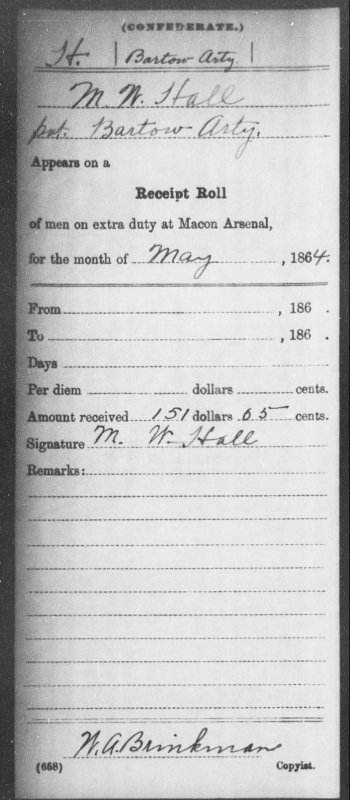 (CONFEDERATE.)
H. | Bartow Arty. |
M. W. Hall
pvt. Bartow Arty.
Appears on a
Receipt Roll
of men on extra duty at Macon Arsenal,
for the month of May, 1864.
From, 186 .
To, 186 .
Days
Per diem dollars cents.
Amount received 151 dollars 65 cents.
Signature M. W. Hall
Remarks:
W. A. Brinkman
(658) Copyist.